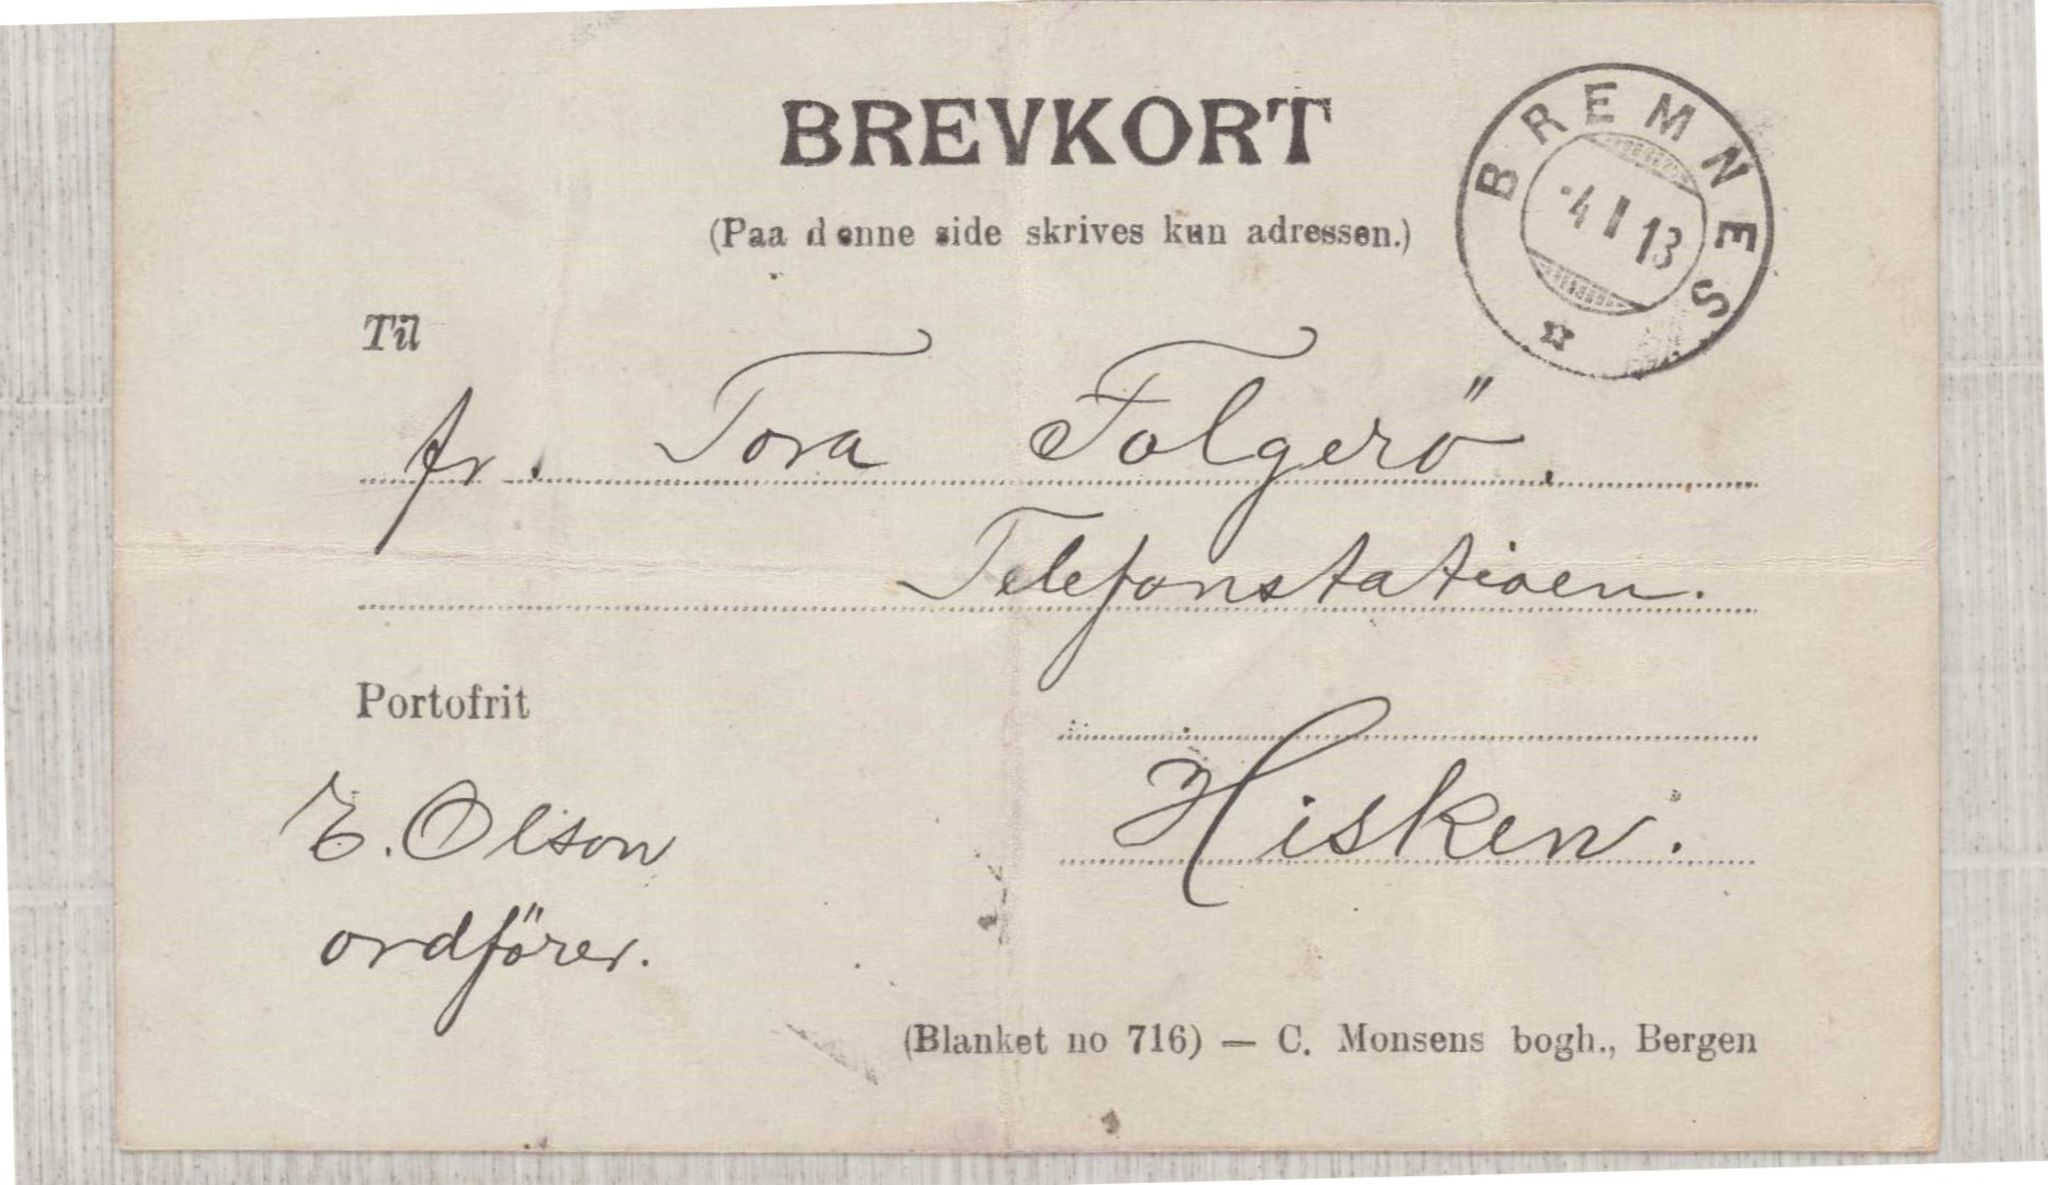 BREVKORT
(Paa denne side skrives kun adressen.)
BREMNES
-4 I 13
Til
fr. Tora Folgerö.
Telefonstationen.
Portofrit
Hisken.
E. Olson
ordförer.
(Blanket no 716) — C. Monsens bogh., Bergen